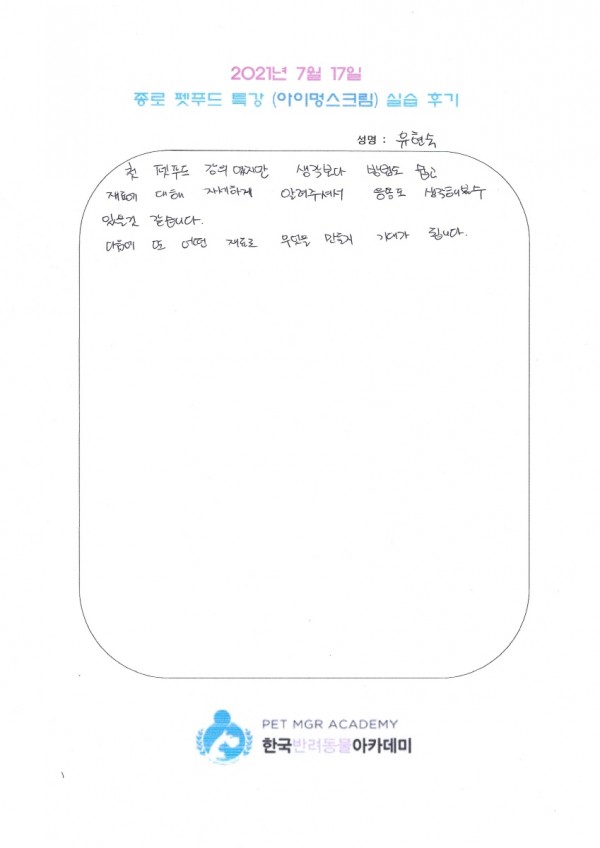 2021년 7월 17일
종로 펫푸드 특강 (아이멍스크림) 실습 후기
성명 : 유현숙
첫 펫푸드 강의였지만 생각보다 방법도 쉽고
재료에 대해 자세하게 알려주셔서 응용도 생각해볼수
있을것 같습니다.
다음에 또 어떤 재료로 무엇을 만들지 기대가 됩니다.
PET MGR ACADEMY
한국반려동물아카데미